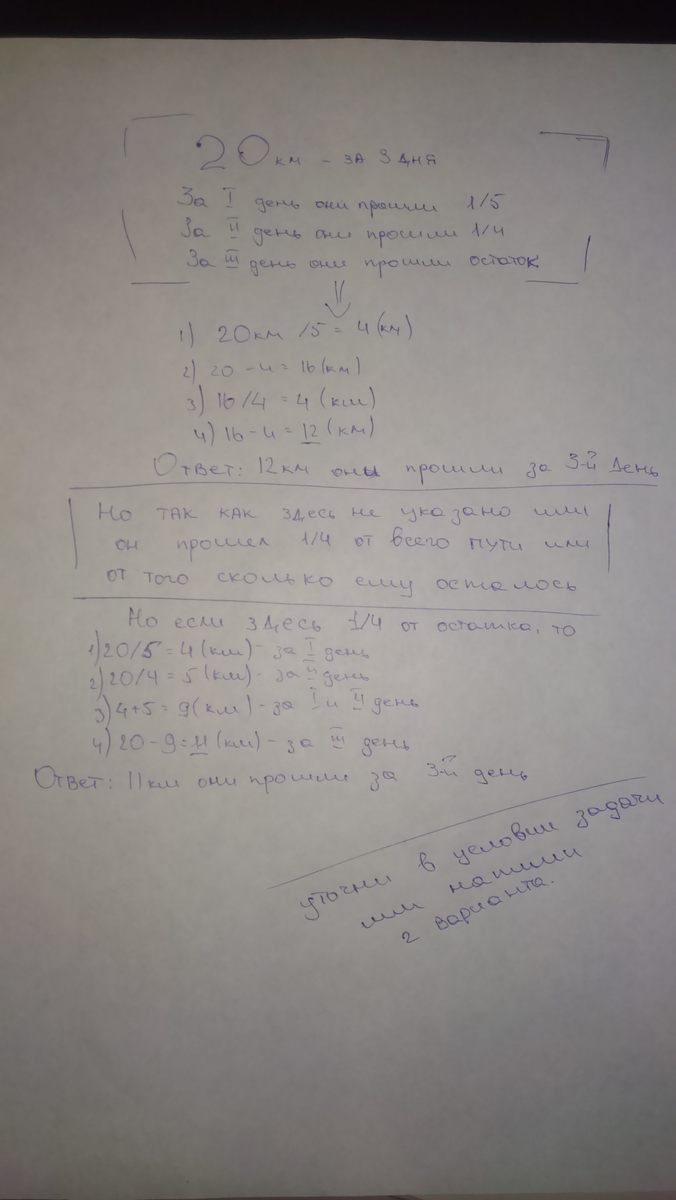 20 км - за 3 дня
За I день они прошли 1/5
За II день они прошли 1/4
За III день они прошли остаток
1) 20км /5 = 4(км)
2) 20 - 4 = 16(км)
3) 16/4 = 4 (км)
4) 16 - 4 = 12 (км)
Ответ: 12км оны прошли за 3-й день
Но так как здесь не указано или
он прошел 1/4 от всего пути или
от того сколько ему осталось
Но если здесь 1/4 от остатка, то
1) 20/5 = 4(км) - за I день
2) 20/4 = 5(км) - за II день
3) 4+5 = 9(км) - за I и II день
4) 20 - 9 = 11(км) - за III день
Ответ: 11км они прошли за 3-й день
уточни в условии задачи
или напиши
2 варианта.